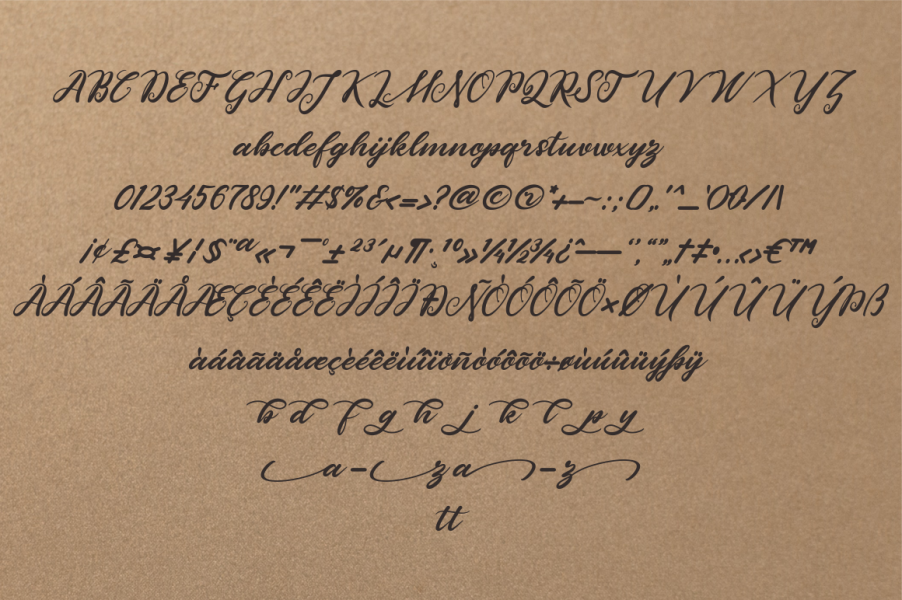 ABCDEFGHIJKLMNOPQRSTUVWXYZ
abcdefghijklmnopqrstuvwxyz
0123456789!"#$%&<=>?@©®*+–~:;(),.'^_`{}/|\
¡¢£¤¥¦§¨ª«¬¯°±²³´µ¶·¸¹º»¼½¾¿ˆ–—‘’‚“”„†‡•…‹›€™
ÀÁÂÃÄÅÆÇÈÉÊËÌÍÎÏÐÑÒÓÔÕÖ×ØÙÚÛÜÝÞß
àáâãäåæçèéêëìíîïðñòóôõö÷øùúûüýþÿ
b d f g h j k l p y
a-z a-z
tt